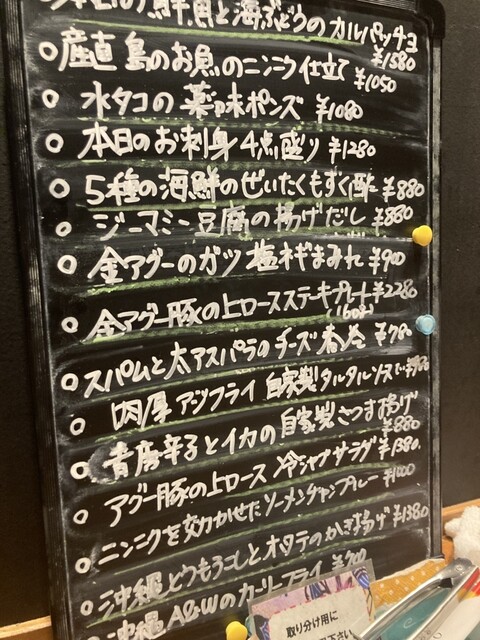 本日の鮮魚と海ぶどうのカルパッチョ ¥1580
産直 島のお魚のニンニク仕立て ¥1050
水タコの薬味ポンズ ¥1080
本日のお刺身4点盛り ¥1280
5種の海鮮のぜいたくもずく酢 ¥880
ジーマミー豆腐の揚げだし ¥880
金アグーのガツ 塩ネギまみれ ¥900
金アグー豚の上ロースステーキプレート ¥2280
(160g)
スパムと太アスパラのチーズ春巻 ¥780
肉厚アジフライ 自家製タルタルソースで
青唐辛子とイカの自家製さつま揚げ ¥880
アグー豚の上ロース 冷シャブサラダ ¥1380
ニンニクを効かせたソーメンチャンプルー
沖縄とうもろこしとホタテのかき揚げ ¥1380
沖縄A&Wのカーリーフライ
取り分け用に